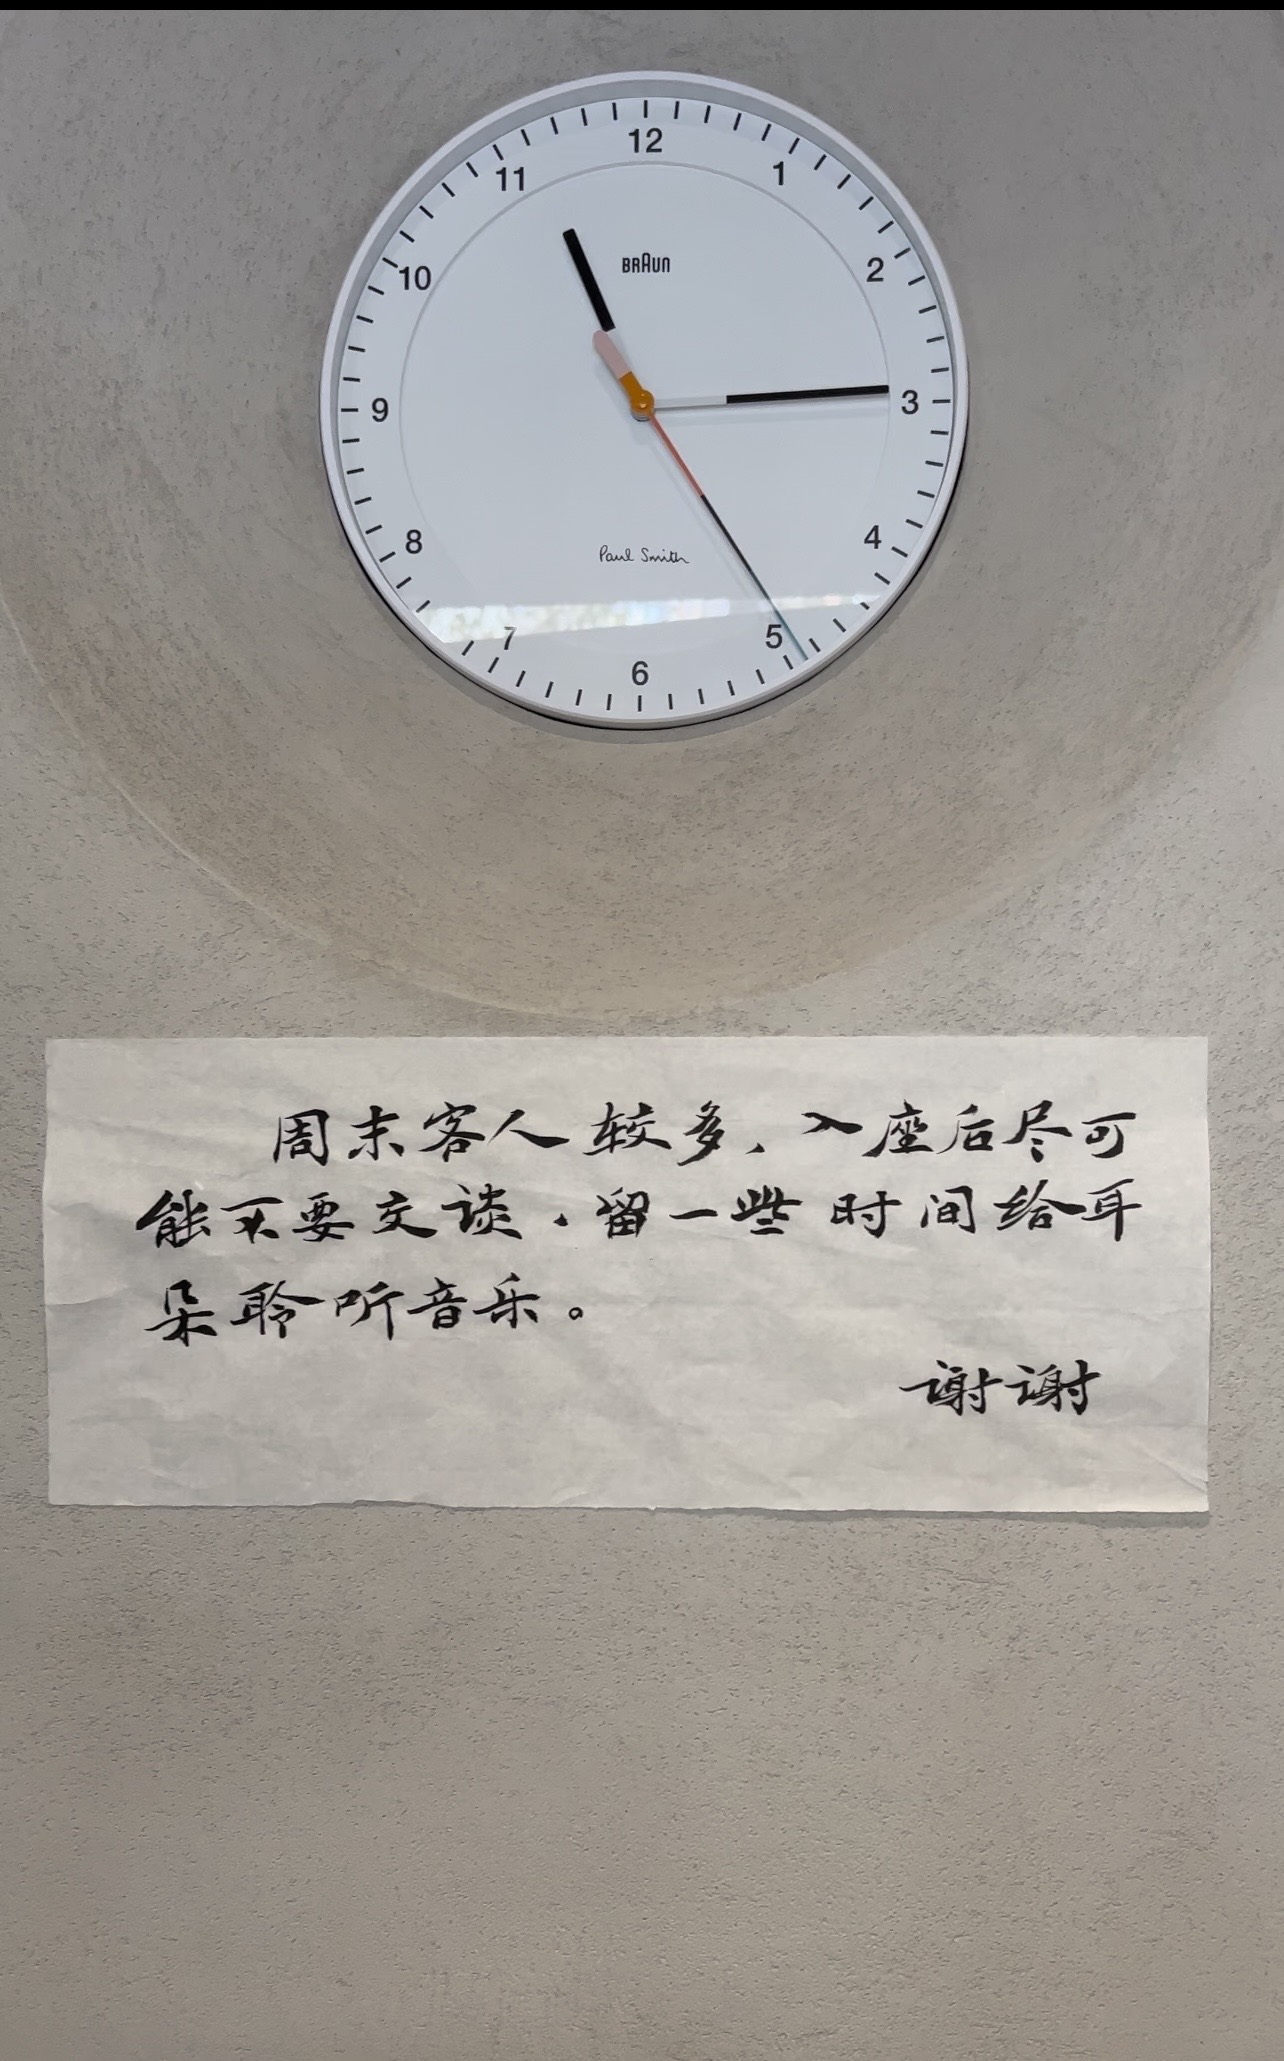 12
11
1
BRAUN
10
2
9
3
8
4
Paul Smith
7
5
6
周末客人较多，入座后尽可
能不要交谈，留一些时间给耳
朵聆听音乐。
谢谢